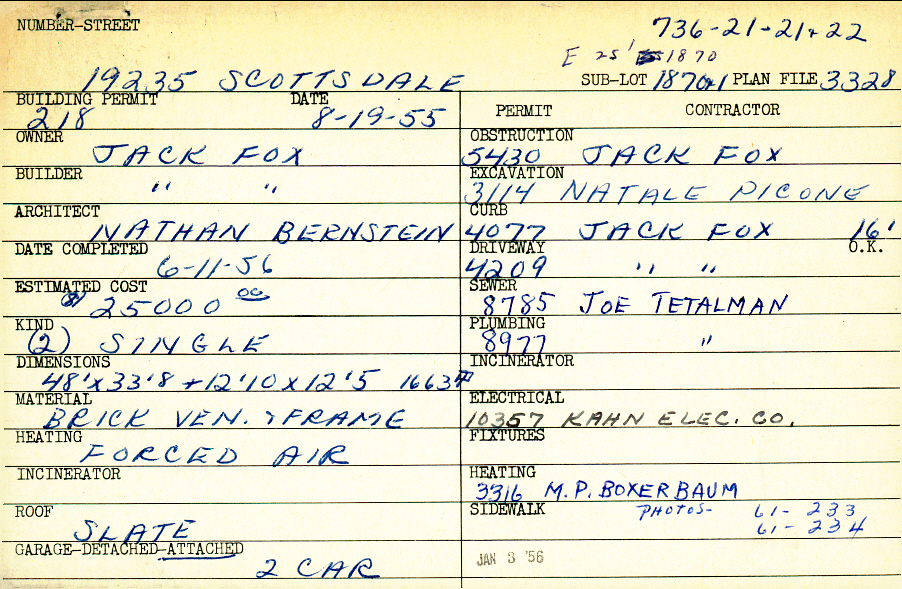 NUMBER-STREET
736-21-21+22
E 25' 1870
19235 SCOTTSDALE
SUB-LOT 1870+1 PLAN FILE 3328
BUILDING PERMIT DATE
218 8-19-55
PERMIT CONTRACTOR
OWNER
JACK FOX
OBSTRUCTION
5430 JACK FOX
BUILDER
" "
EXCAVATION
3114 NATALE PICONE
ARCHITECT
NATHAN BERNSTEIN
CURB
4077 JACK FOX 16'
O.K.
DATE COMPLETED
6-11-56
DRIVEWAY
4209 " "
ESTIMATED COST
$ 25000 00
SEWER
8785 JOE TETALMAN
KIND
(2) SINGLE
PLUMBING
8977 "
DIMENSIONS
48'x33'8 + 12'10 x 12'5 16637
INCINERATOR
MATERIAL
BRICK VEN. + FRAME
ELECTRICAL
10357 KAHN ELEC. CO.
HEATING
FORCED AIR
FIXTURES
INCINERATOR
HEATING
3316 M.P. BOXERBAUM
ROOF
SLATE
SIDEWALK
PHOTOS- 61-233
61-234
GARAGE-DETACHED-ATTACHED
2 CAR
JAN 3 '56